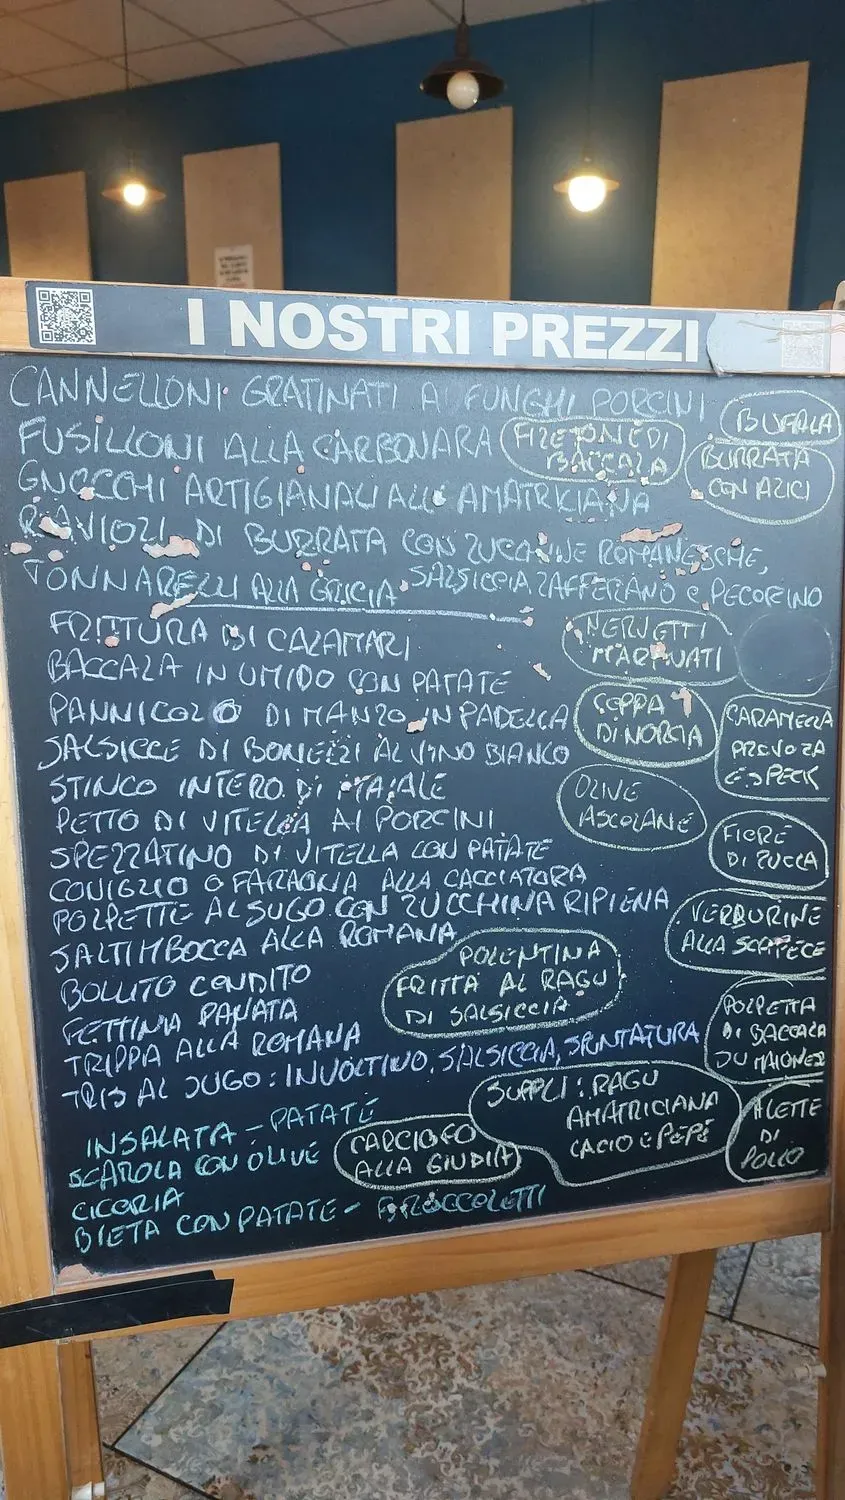 I NOSTRI PREZZI
CANNELLONI GRATINATI AI FUNGHI PORCINI
BUFALA
FUSILLONI ALLA CARBONARA
FILETTONE DI
BACCALA
BURRATA
CON ALICI
GNOCCHI ARTIGIANALI ALL'AMATRICIANA
RAVIOLI DI BURRATA CON ZUCCHINE ROMANESCHE,
SALSICCIA ZAFFERANO e PECORINO
TONNARELLI ALLA GRICIA
FRITTURA DI CALAMARI
NERVETTI
MARINATI
BACCALA IN UMIDO CON PATATE
PANNICOLO DI MANZO IN PADELLA
COPPA
DI NORCIA
CARAMELLA
PROVOLA
E SPECK
SALSICCE DI BONELLI AL VINO BIANCO
STINCO INTERO DI MAIALE
OLIVE
ASCOLANE
PETTO DI VITELLA AI PORCINI
FIORE
DI ZUCCA
SPEZZATINO DI VITELLA CON PATATE
CONIGLIO O FARAONA ALLA CACCIATORA
POLPETTE AL SUGO CON ZUCCHINA RIPIENA
VERDURINE
ALLA SCAPECE
SALTIMBOCCA ALLA ROMANA
POLENTINA
FRITTA AL RAGU
DI SALSICCIA
BOLLITO CONDITO
FETTINA PANATA
POLPETTA
DI BACCALA
SU MAIONESE
TRIPPA ALLA ROMANA
TRIS AL SUGO: INVOLTINO, SALSICCIA, SPUNTATURA
SUPPLI: RAGU
AMATRICIANA
CACIO e PEPE
ALETTE
DI
POLLO
INSALATA - PATATE
SCAROLA CON OLIVE
CARCIOFO
ALLA GIUDIA
CICORIA
BIETA CON PATATE - BROCCOLETTI